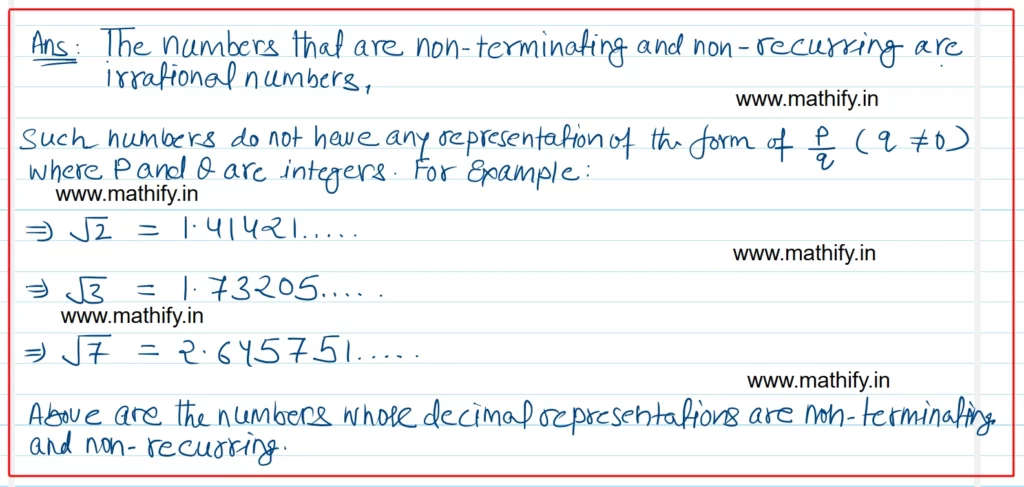 Ans: The numbers that are non-terminating and non-recurring are
irrational numbers,
www.mathify.in
Such numbers do not have any representation of the form of p/q (q ≠ 0)
where P and Q are integers. For Example:
www.mathify.in
⇒ √2 = 1.41421.....
www.mathify.in
⇒ √3 = 1.73205.....
www.mathify.in
⇒ √7 = 2.645751.....
www.mathify.in
Above are the numbers whose decimal representations are non-terminating
and non-recurring.